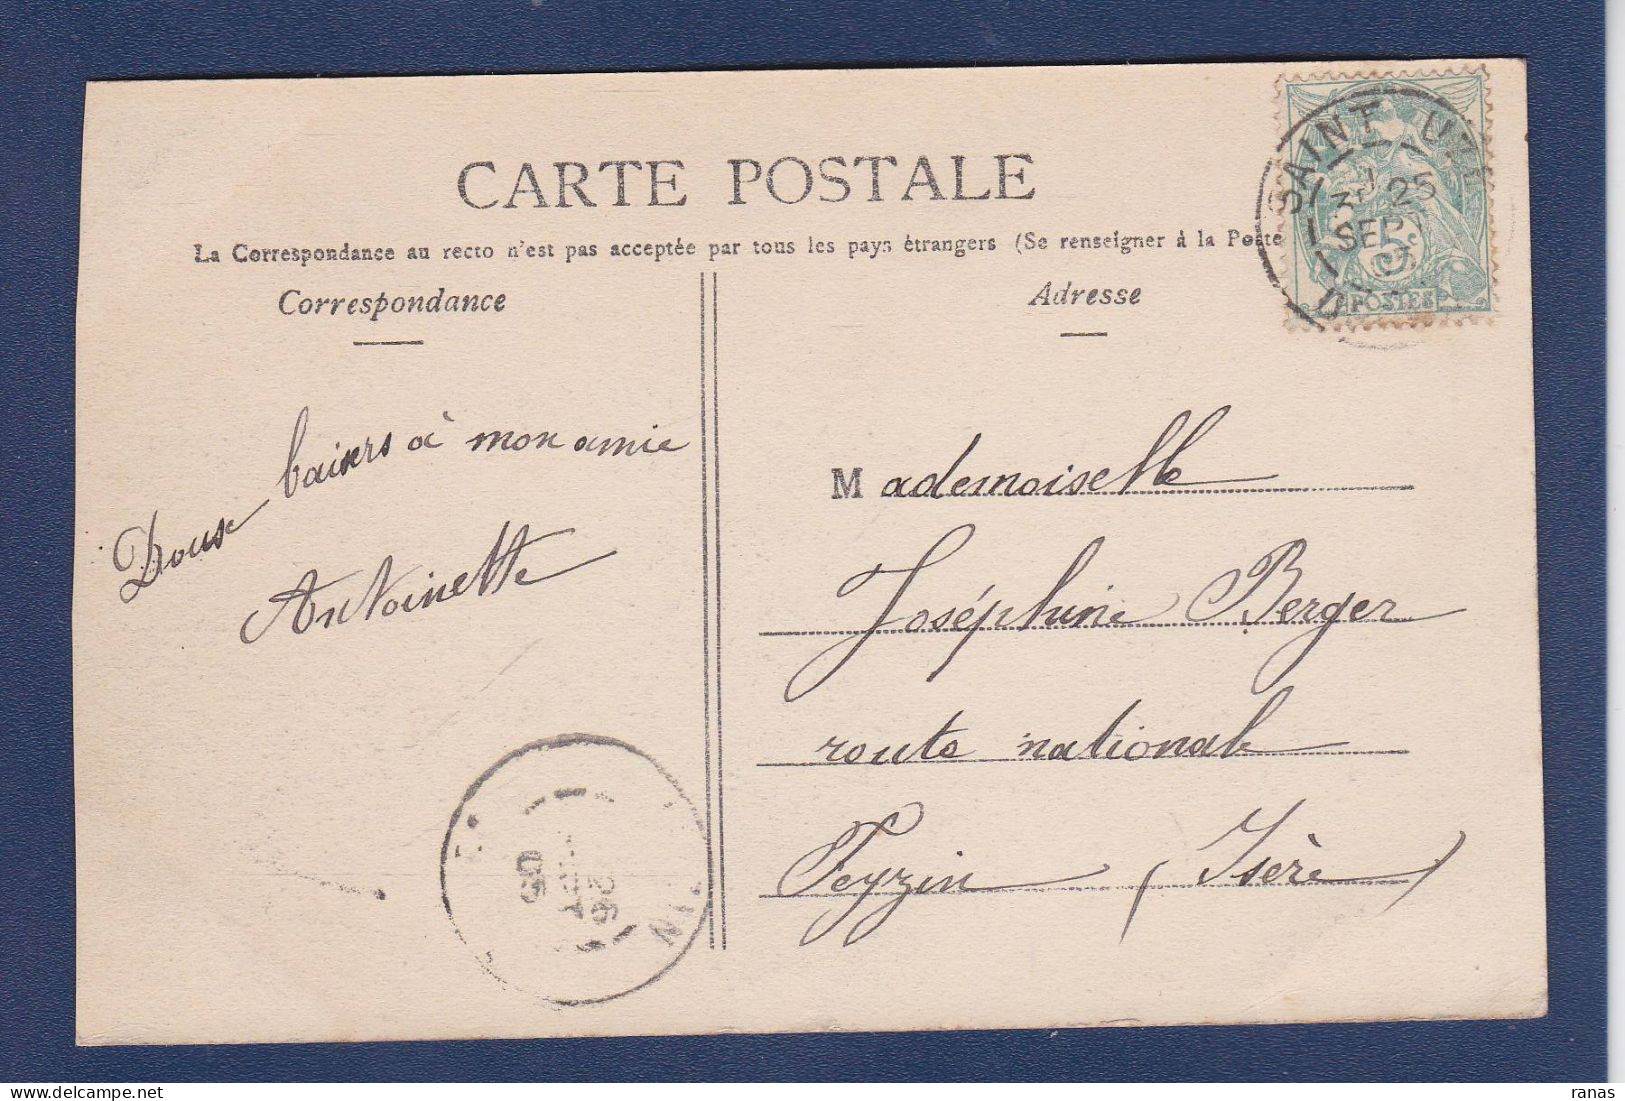 CARTE POSTALE
La Correspondance au recto n'est pas acceptée par tous les pays étrangers (Se renseigner à la Poste
Correspondance
Adresse
SAINT UZE
25
SEPT
5c
POSTES
Doux baisers à mon amie
Antoinette
Mademoiselle
Joséphine Berger
route national
Feyzin (Isère)
26
05
ranas